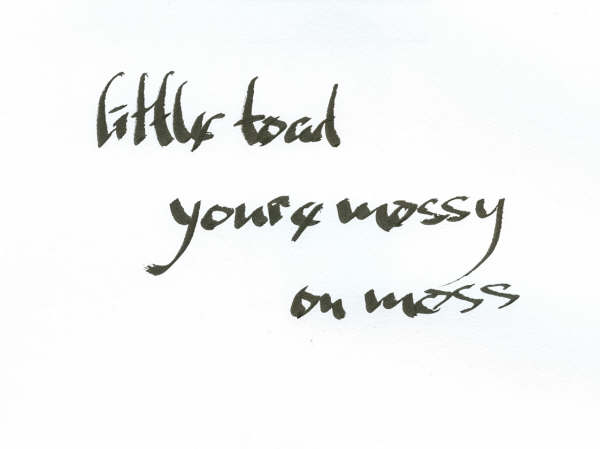 little toad
youre mossy
on moss